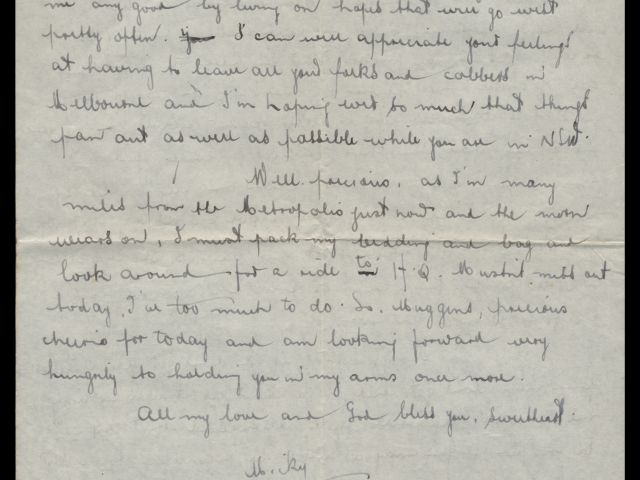 me any good by living on hopes that will go west
pretty often. I can well appreciate your feelings
at having to leave all your folks and cobbers in
Melbourne and I'm hoping ever so much that things
pan out as well as possible while you are in NSW.
Well precious, as I'm many
miles from the Metropolis just now and the morn
wears on, I must pack my bedding and bag and
look around for a ride to H.Q. Mustn't miss out
today, I've too much to do. So, Muggins, precious
cheerio for today and am looking forward very
hungrily to holding you in my arms once more.
All my love and God bless you, sweetheart.